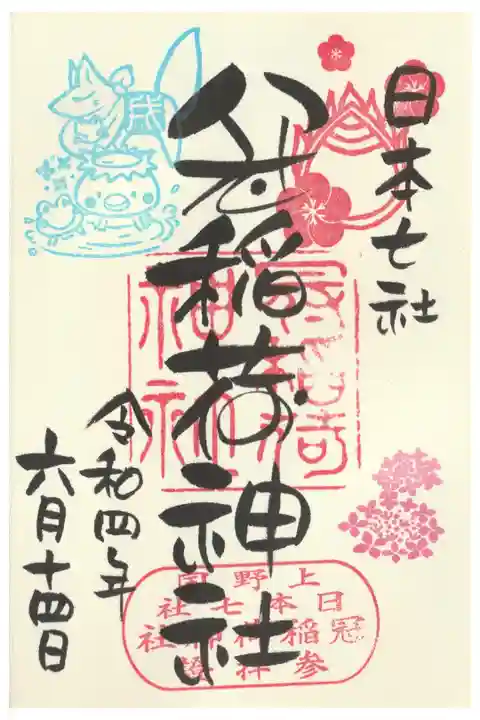 日本七社
冠稲荷神社
令和四年
六月十四日
上野国
日本七社
冠稲荷神社
参拝證